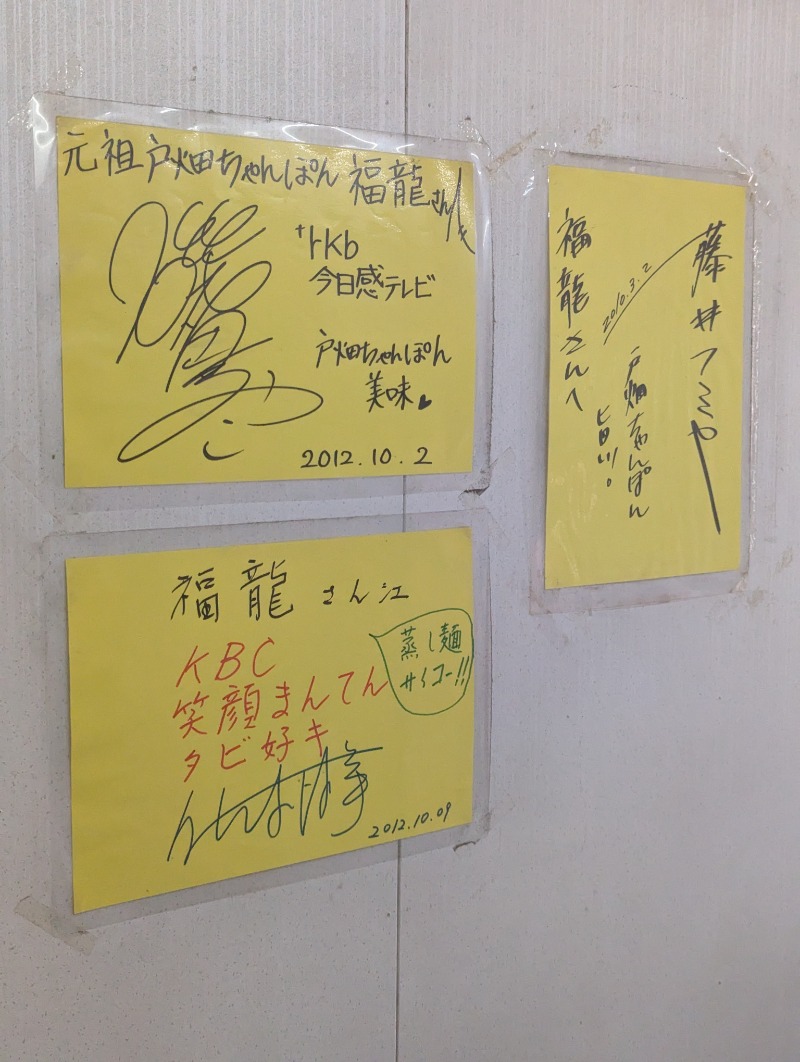 元祖戸畑ちゃんぽん 福龍さんへ
rkb
今日感テレビ
戸畑ちゃんぽん
美味
2012.10.2
福龍さん江
KBC
笑顔まんてん
タビ好キ
蒸し麺
サイコー!!
2012.10.09
藤井フミヤ
2010.3.2
戸畑ちゃんぽん
福龍さんへ